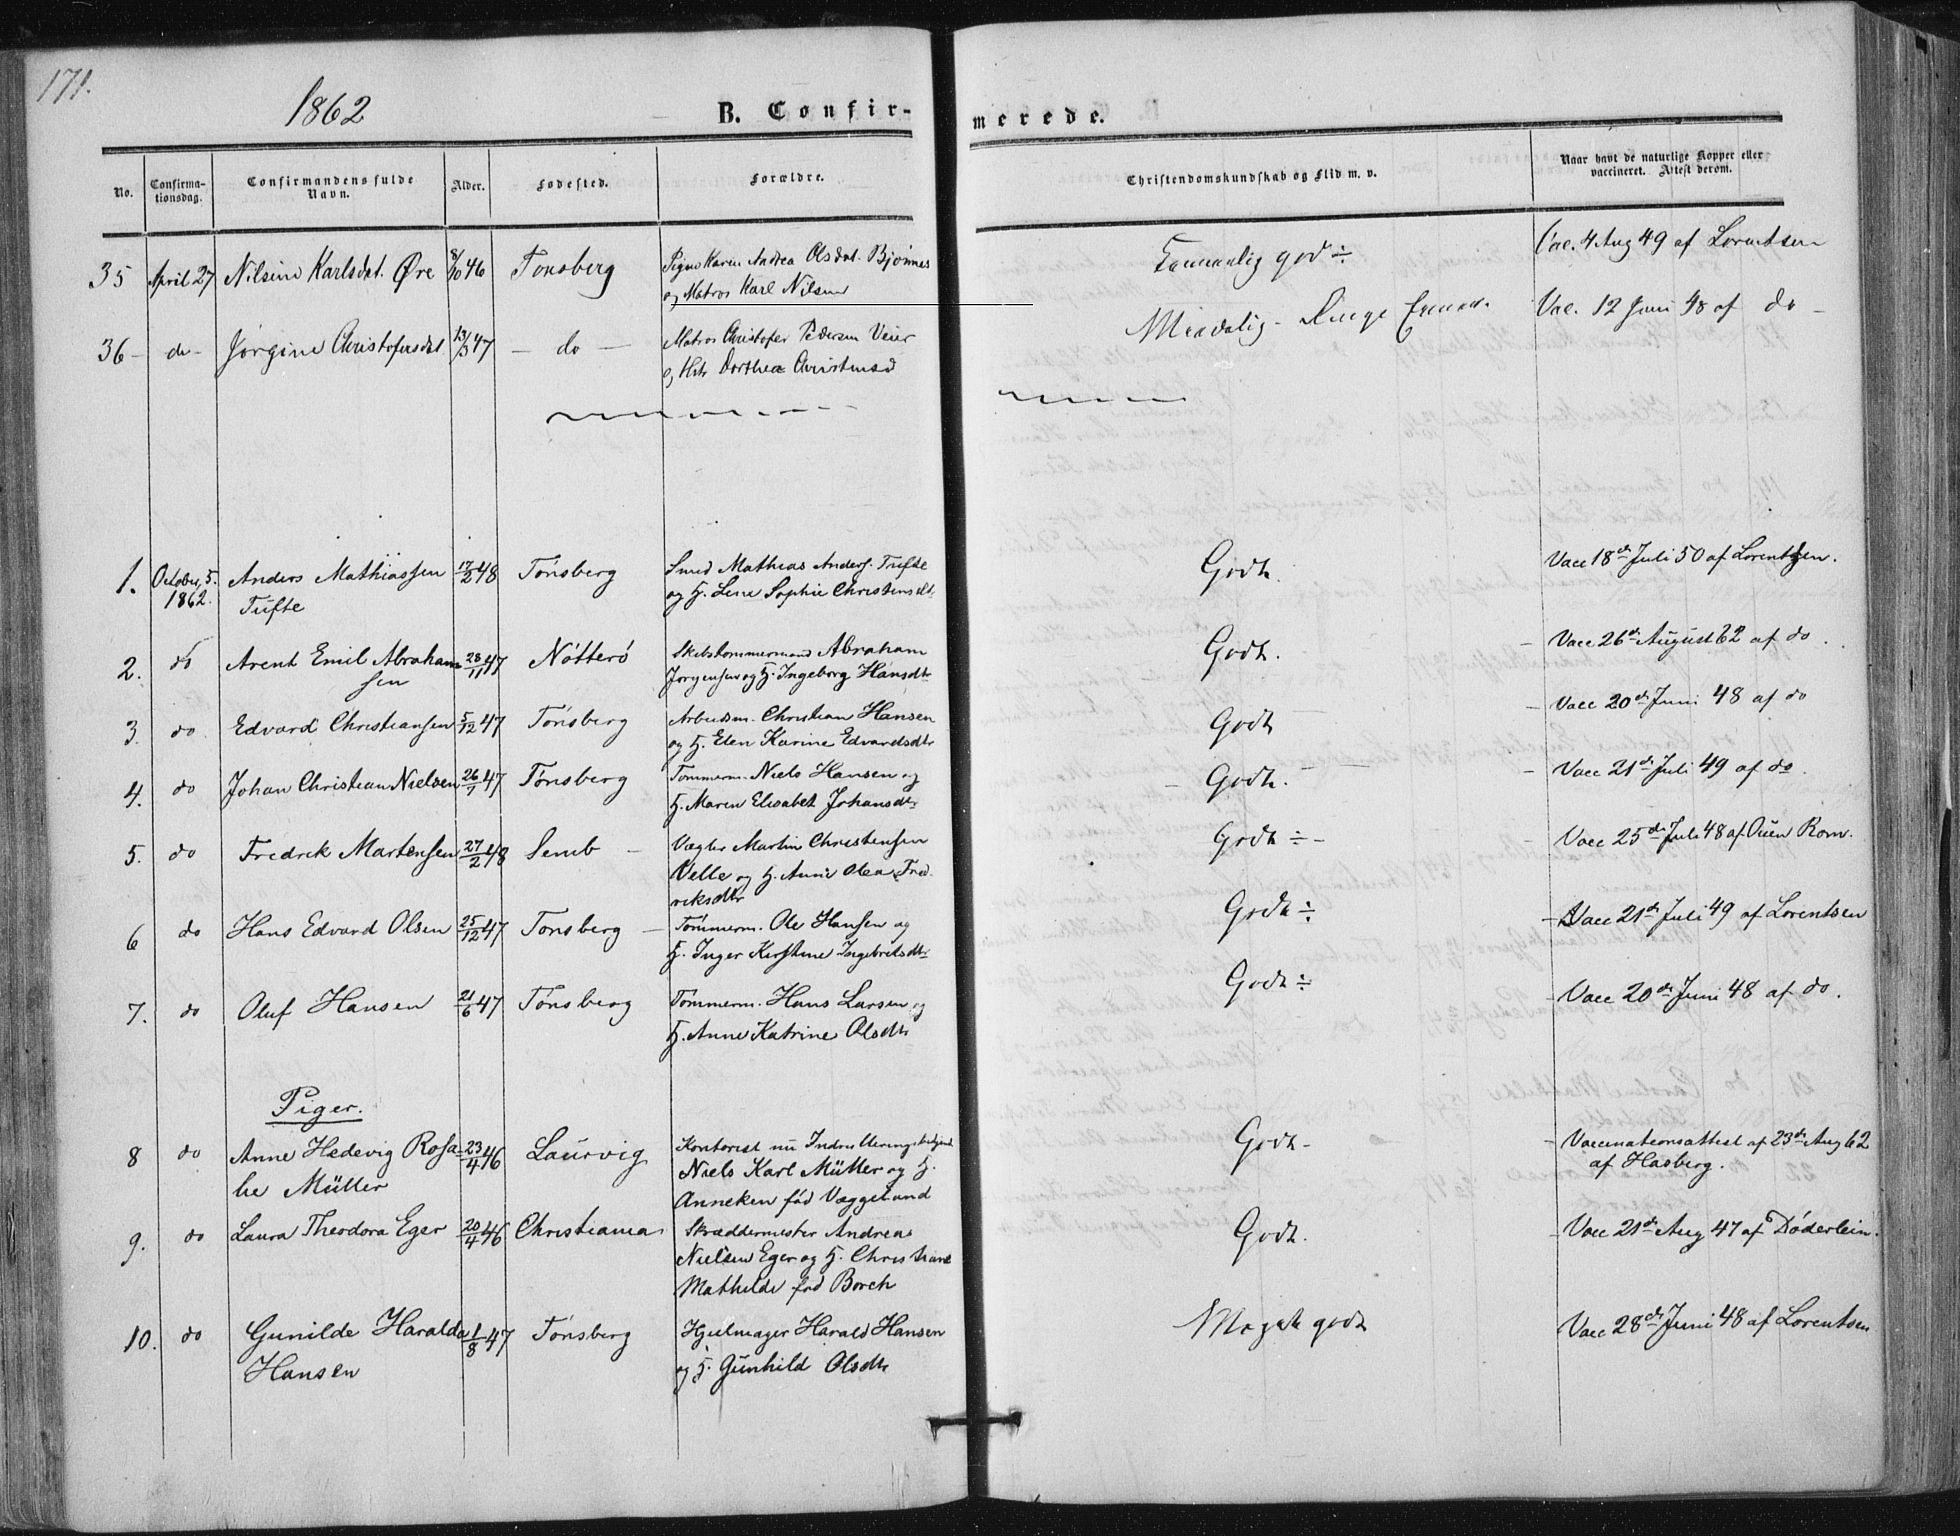 171.
1862
B. Confirmerede.
No. Confirmationsdag. Confirmandens fulde Navn. Alder. Fødested. Forældre. Christendomskundskab og Flid m. v. Naar havt de naturlige Kopper eller vaccineret. Attest derom.
35 April 27 Nilsine Karlsdat. Øre 8/10 46 Tonsberg Pige Karen Andrea Olsdat. Bjønnes god ÷ Vac. 4 Aug 49 af Lorentsen
og Matros Karl Nilsen
36 - do - Jørgine Christofersdat 13/3 47 - do - Matros Christofer Pedersen Veier Maadelig - Ringe Vac. 12 Juni 48 af do -
og Dorthea
1. October, 5. Anders Mathiassen 17/2 48 Tönsberg Smed Mathias Anders. Tufte Godt. Vacc 18de Juli 50 af Lorentsen.
1862. Tufte og H. Lene Sophie Christensdt.
2. do Arent Emil Abraham 28/11 47 Nötterö Skibstømmermand Abraham Godt. - Vacc 26de August 62 af do.
sen Jørgensen og H. Ingeborg Hansdt
3. do Edvard Christiansen 5/12 47 Tönsberg Arbeidsm. Christian Hansen Godt - Vacc 20de Juni 48 af do
og H. Elen Karine Edvardsdtr
4. do Johan Christian Nielsen 26/1 47 Tönsberg Tømmerm. Niels Hansen og - Godt. - Vacc 21de Juli 49 af do.
H. Maren Elisabet Johansdtr
5. do Fredrik Martensen 27/2 48 Semb - Vægter Martin Christensen Godt ÷ - Vacc 25de Juli 48 af Rom.
Velle og H. Anne Olea Fred
riksdtr
6 do Hans Edvard Olsen 25/12 47 Tonsberg - Tømmerm. Ole Hansen og Godt ÷ - Vacc 21de Juli 49 af Lorentsen
H. Inger Kirstine Ingebretsdtr
7. do Oluf Hansen 21/6 47 Tönsberg Tømmerm. Hans Larsen og Godt ÷ - Vacc 20de Juni 48 af do.
H. Anne Katrine Olsdtr
Piger.
8 do Anne Hedevig Rosa- 23/4 46 Laurvig Kontorist nu Godt - - Vaccinationsattest af 23de Aug 62
lie Müller Niels Karl Müller og H. af Hasberg.
Anneken fød Væggelund
9. do Laura Theodora Eger 20/4 46 Christiania Skræddermester Andreas Godt. - Vacc 21de Aug 47 af Døderlein.
Nielsen Eger og H. Christiane
Mathilde fød Borch
10. do Gunilde Haralda 1/8 47 Tönsberg Hjulmager Harald Hansen Meget godt Vacc 28de Juni 48 af Lorentsen
Hansen og H. Günhild Olsdtr